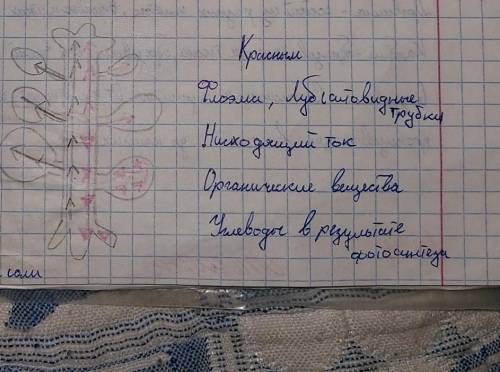 Красным
Флоэма, Луб(ситовидные
трубки
Нисходящий ток
Органические вещества
Углеводы в результате
фотосинтеза
соли